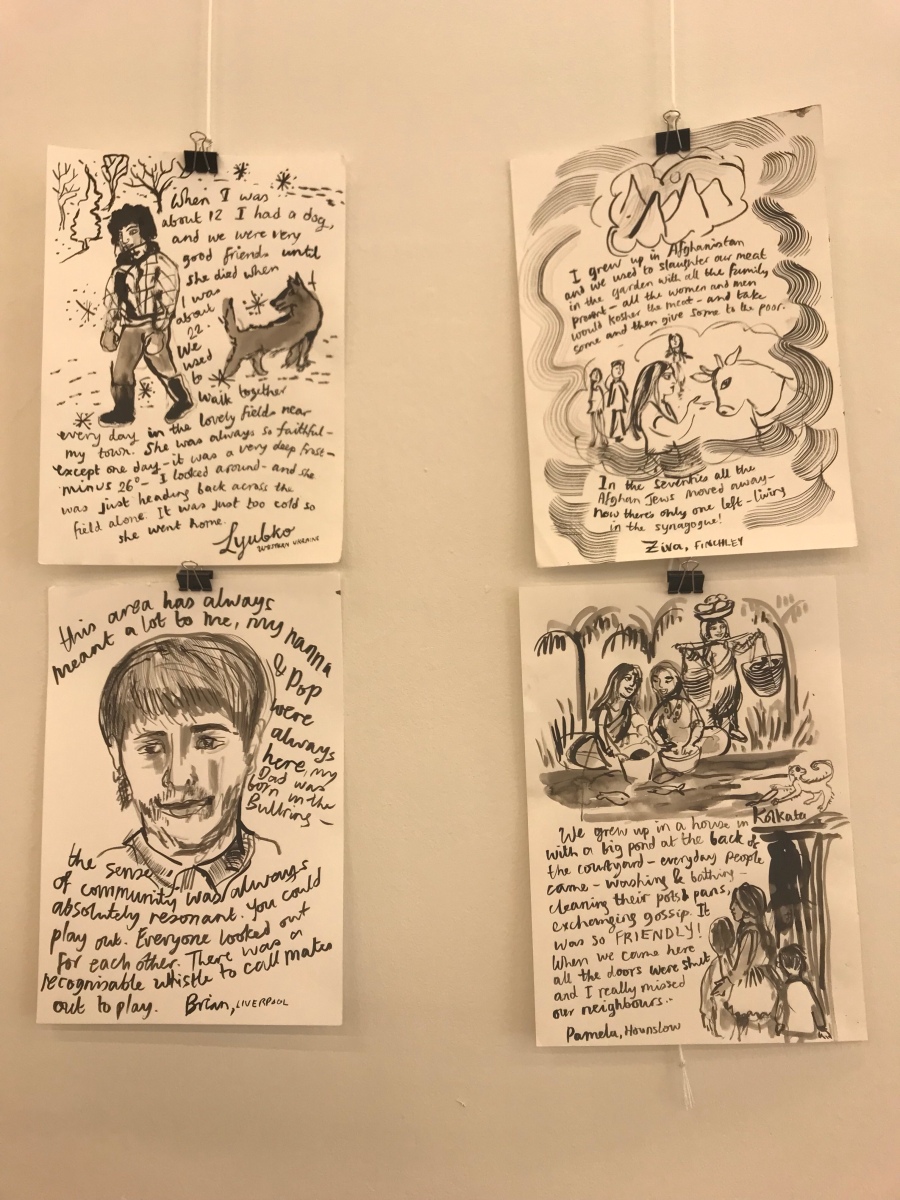 When I was
about 12 I had a dog,
and we were very
good friends until
she died when
I was
about
22.
We
used
to
walk together
every day in the lovely fields near
my town. She was always so faithful-
except one day - it was a very deep frost -
minus 26° - I looked around - and she
was just heading back across the
field alone. It was just too cold so
she went home.
Lyubko
WESTERN UKRAINE
I grew up in Afghanistan
and we used to slaughter our meat
in the garden with all the family
present - all the women and men
would kosher the meat - and take
some and then give some to the poor.
In the seventies all the
Afghan Jews moved away-
now there's only one left - living
in the synagogue!
Ziva, FINCHLEY
this area has always
meant a lot to me, my nanna
& Pop
were
always
here, my
Dad was
born in the
Bullring -
the sense
of community was always
absolutely resonant. You could
play out. Everyone looked out
for each other. There was a
recognisable whistle to call mates
out to play. Brian, LIVERPOOL
We grew up in a house in Kolkata
with a big pond at the back of
the courtyard - everyday people
came - washing & bathing -
cleaning their pots & pans,
exchanging gossip. It
was so FRIENDLY!
When we came here
all the doors were shut
and I really missed
our neighbours..
Pamela, Hounslow